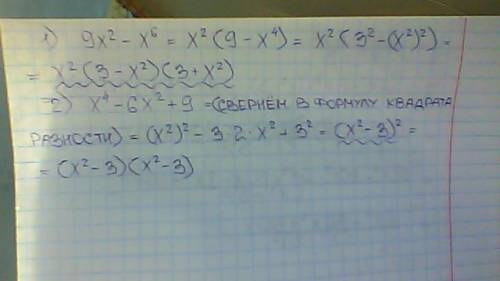 1) 9x² - x⁶ = x² (9 - x⁴) = x² (3² - (x²)²) =
= x² (3 - x²)(3 + x²)
2) x⁴ - 6x² + 9 = (СВЕРНЁМ В ФОРМУЛУ КВАДРАТА
РАЗНОСТИ) = (x²)² - 3·2·x² + 3² = (x² - 3)² =
= (x² - 3)(x² - 3)